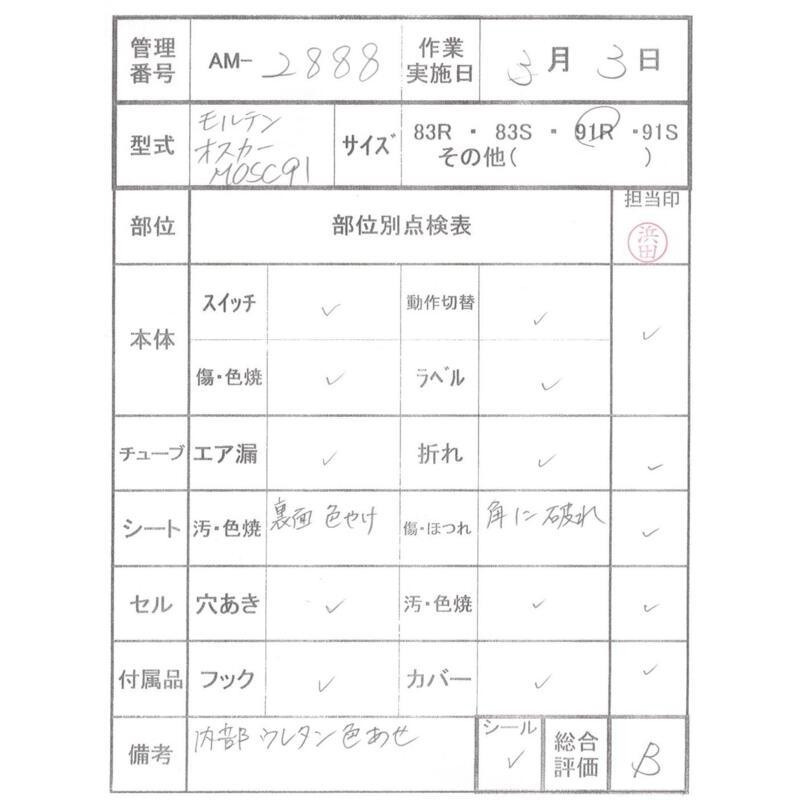 管理番号 AM- 2888 作業実施日 3月 3日
型式 モルテン オスカー MOSC91 サイズ 83R ・ 83S ・ 91R ・91S その他( )
部位 部位別点検表 担当印 浜田
本体 スイッチ ✓ 動作切替 ✓ ✓
傷・色焼 ✓ ラベル ✓
チューブ エア漏 ✓ 折れ ✓ ✓
シート 汚・色焼 裏面 色やけ 傷・ほつれ 角に 破れ ✓
セル 穴あき ✓ 汚・色焼 ✓ ✓
付属品 フック ✓ カバー ✓ ✓
備考 内部 ウレタン 色あせ シール ✓ 総合評価 B